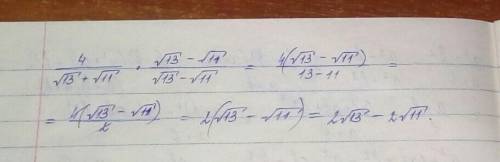 4/(√13 + √11) · (√13 − √11)/(√13 − √11) = 4(√13 − √11)/(13 − 11) =
= 4(√13 − √11)/2 = 2(√13 − √11) = 2√13 − 2√11.